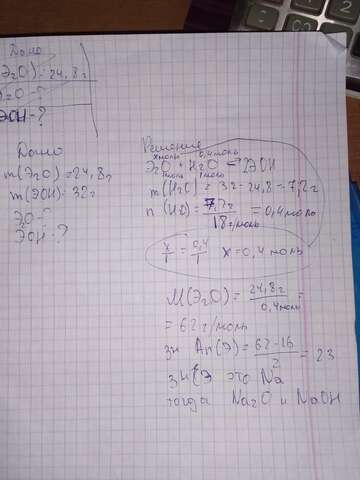 Дано
(Э₂O) = 24,8г
Э₂O - ?
ЭOH - ?
Дано
m(Э₂O) = 24,8г
m(ЭOH) = 32г
Э₂O - ?
ЭOH - ?
Решение
xмоль 0,4моль
Э₂O + H₂O → 2ЭOH
1моль 1моль
m(H₂O) = 32 - 24,8 = 7,2г
n(H₂O) = 7,2г / 18г/моль = 0,4моль
x/1 = 0,4/1 x = 0,4 моль
M(Э₂O) = 24,8г / 0,4моль =
= 62 г/моль
зн Ar(Э) = 62-16 / 2 = 23
зн Э это Na
тогда Na₂O и NaOH